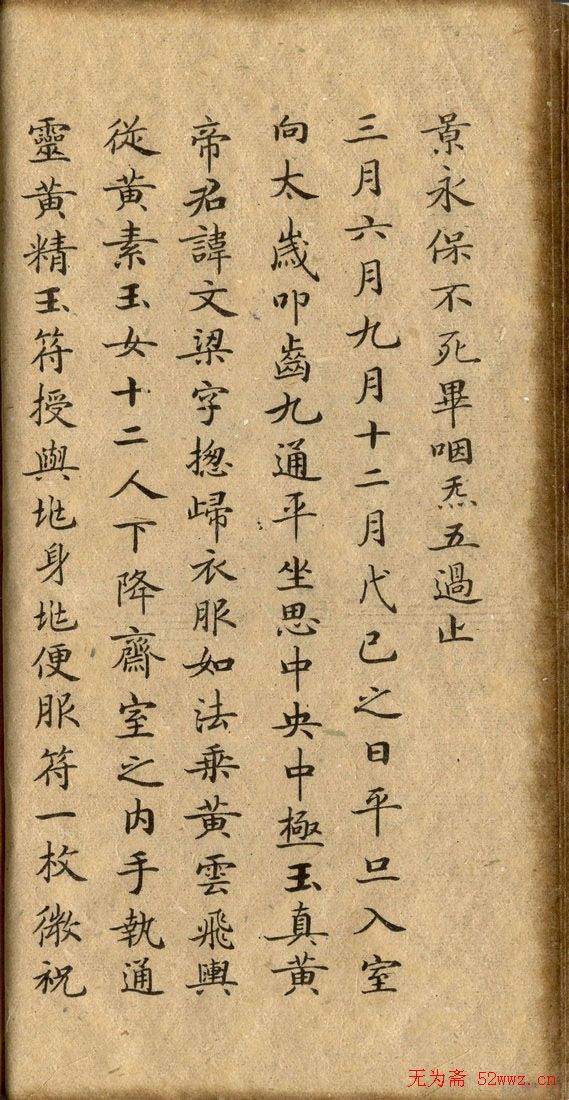 景永保不死畢咽炁五過止
三月六月九月十二月戊己之日平旦入室
向太歲叩齒九通平坐思中央中極玉真黃
帝君諱文梁字揔歸衣服如法乘黃雲飛輿
從黃素玉女十二人下降齋室之内手執通
靈黃精玉符授與兆身兆便服符一枚微祝
无为斋 52wwz.cn